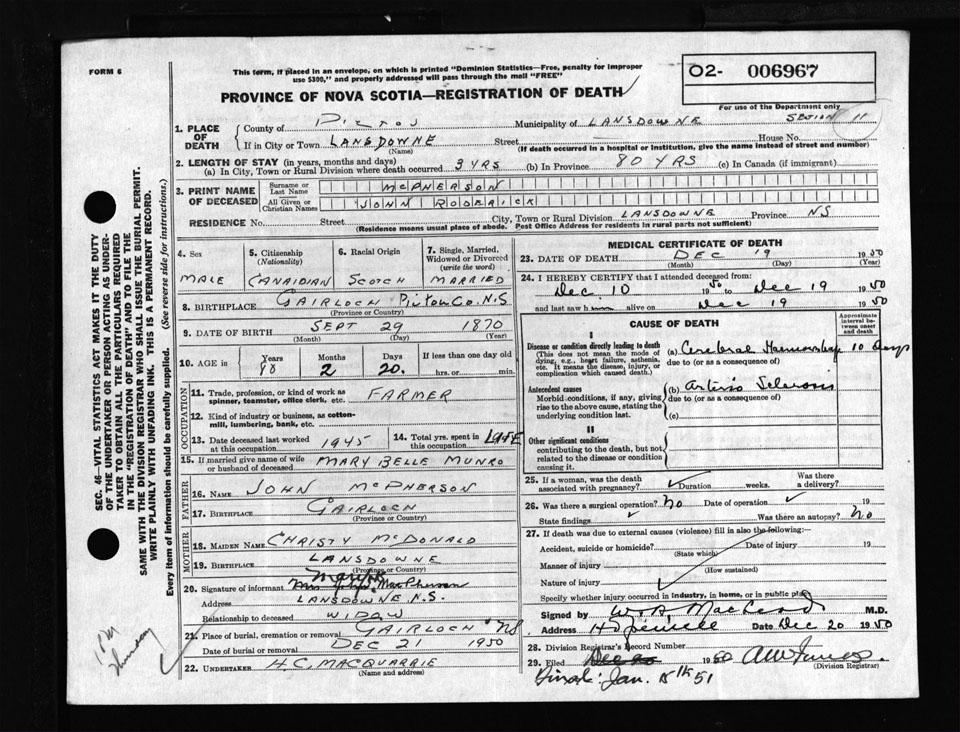 FORM 6
This form, if placed in an envelope, on which is printed "Dominion Statistics—Free, penalty for improper
use $300," and properly addressed will pass through the mail "FREE"
O2- 006967
For use of the Department only
PROVINCE OF NOVA SCOTIA—REGISTRATION OF DEATH
1. PLACE OF DEATH
County of PICTOU Municipality of LANSDOWNE SECTION 11
If in City or Town LANSDOWNE Street House No.
(Name) (If death occurred in a hospital or institution, give the name instead of street and number)
2. LENGTH OF STAY (in years, months and days)
(a) In City, Town or Rural Division where death occurred 3 YRS (b) In Province 80 YRS (c) In Canada (if immigrant)
3. PRINT NAME OF DECEASED
Surname or Last Name MCPHERSON
All Given or Christian Names JOHN RODERICK
RESIDENCE No. Street City, Town or Rural Division LANSDOWNE Province NS
(Residence means usual place of abode. Post Office Address for residents in rural parts not sufficient)
4. Sex
MALE
5. Citizenship (Nationality)
CANAIDIAN
6. Racial Origin
SCOTCH
7. Single, Married, Widowed or Divorced (write the word)
MARRIED
8. BIRTHPLACE GAIRLOCH Pictou Co. N.S
(Province or Country)
9. DATE OF BIRTH SEPT 29 1870
(Month) (Day) (Year)
10. AGE in Years Months Days If less than one day old
80 2 20. hrs. or min.
OCCUPATION
11. Trade, profession, or kind of work as spinner, teamster, office clerk, etc. FARMER
12. Kind of industry or business, as cotton-mill, lumbering, bank, etc.
13. Date deceased last worked at this occupation 1945 14. Total yrs. spent in this occupation LIFE
15. If married give name of wife or husband of deceased MARY BELLE MUNRO
FATHER
16. NAME JOHN MCPHERSON
17. BIRTHPLACE GAIRLOCH
(Province or Country)
MOTHER
18. MAIDEN NAME CHRISTY MCDONALD
19. BIRTHPLACE LANSDOWNE
(Province or Country)
20. Signature of informant Mrs John MacPherson
Address LANSDOWNE N.S.
Relationship to deceased WIDOW
21. Place of burial, cremation or removal GAIRLOCH NS
Date of burial or removal DEC 21 1950
22. UNDERTAKER H.C. MACQUARRIE
(Name and address)
MEDICAL CERTIFICATE OF DEATH
23. DATE OF DEATH DEC 19 1950
(Month) (Day) (Year)
24. I HEREBY CERTIFY that I attended deceased from:
Dec. 10 1950 to Dec 19 1950
and last saw h alive on Dec 19 1950
CAUSE OF DEATH
Approximate interval between onset and death
I
Disease or condition directly leading to death
(This does not mean the mode of dying, e.g., heart failure, asthenia, etc. It means the disease, injury, or complication which caused death.)
(a) Cerebral Haemorrhage 10 days
due to (or as consequence of)
Antecedent causes
Morbid conditions, if any, giving rise to the above cause, stating the underlying condition last.
(b) Arterio Sclerosis
due to (or as consequence of)
(c)
II
Other significant conditions
contributing to the death, but not related to the disease or condition causing it.
25. If a woman, was the death associated with pregnancy? Duration weeks. Was there a delivery?
26. Was there a surgical operation? No Date of operation 19
State findings Was there an autopsy? No
27. If death was due to external causes (violence) fill in also the following:—
Accident, suicide or homicide? Date of injury 19
(State which)
Manner of injury
(How sustained)
Nature of injury
Specify whether injury occurred in industry, in home, or in public place
Signed by W.A. MacLeod M.D.
Address Hopewell Date Dec 20 1950
28. Division Registrar's Record Number
29. Filed 1950
(Division Registrar)
Jan. 15th 51
SEC. 46—VITAL STATISTICS ACT MAKES IT THE DUTY
OF THE UNDERTAKER OR PERSON ACTING AS UNDER-
TAKER TO OBTAIN ALL THE PARTICULARS REQUIRED
IN THE "REGISTRATION OF DEATH" AND TO FILE THE
SAME WITH THE DIVISION REGISTRAR WHO SHALL ISSUE THE BURIAL PERMIT.
WRITE PLAINLY WITH UNFADING INK. THIS IS A PERMANENT RECORD.
Every item of information should be carefully supplied. (See reverse side for instructions.)